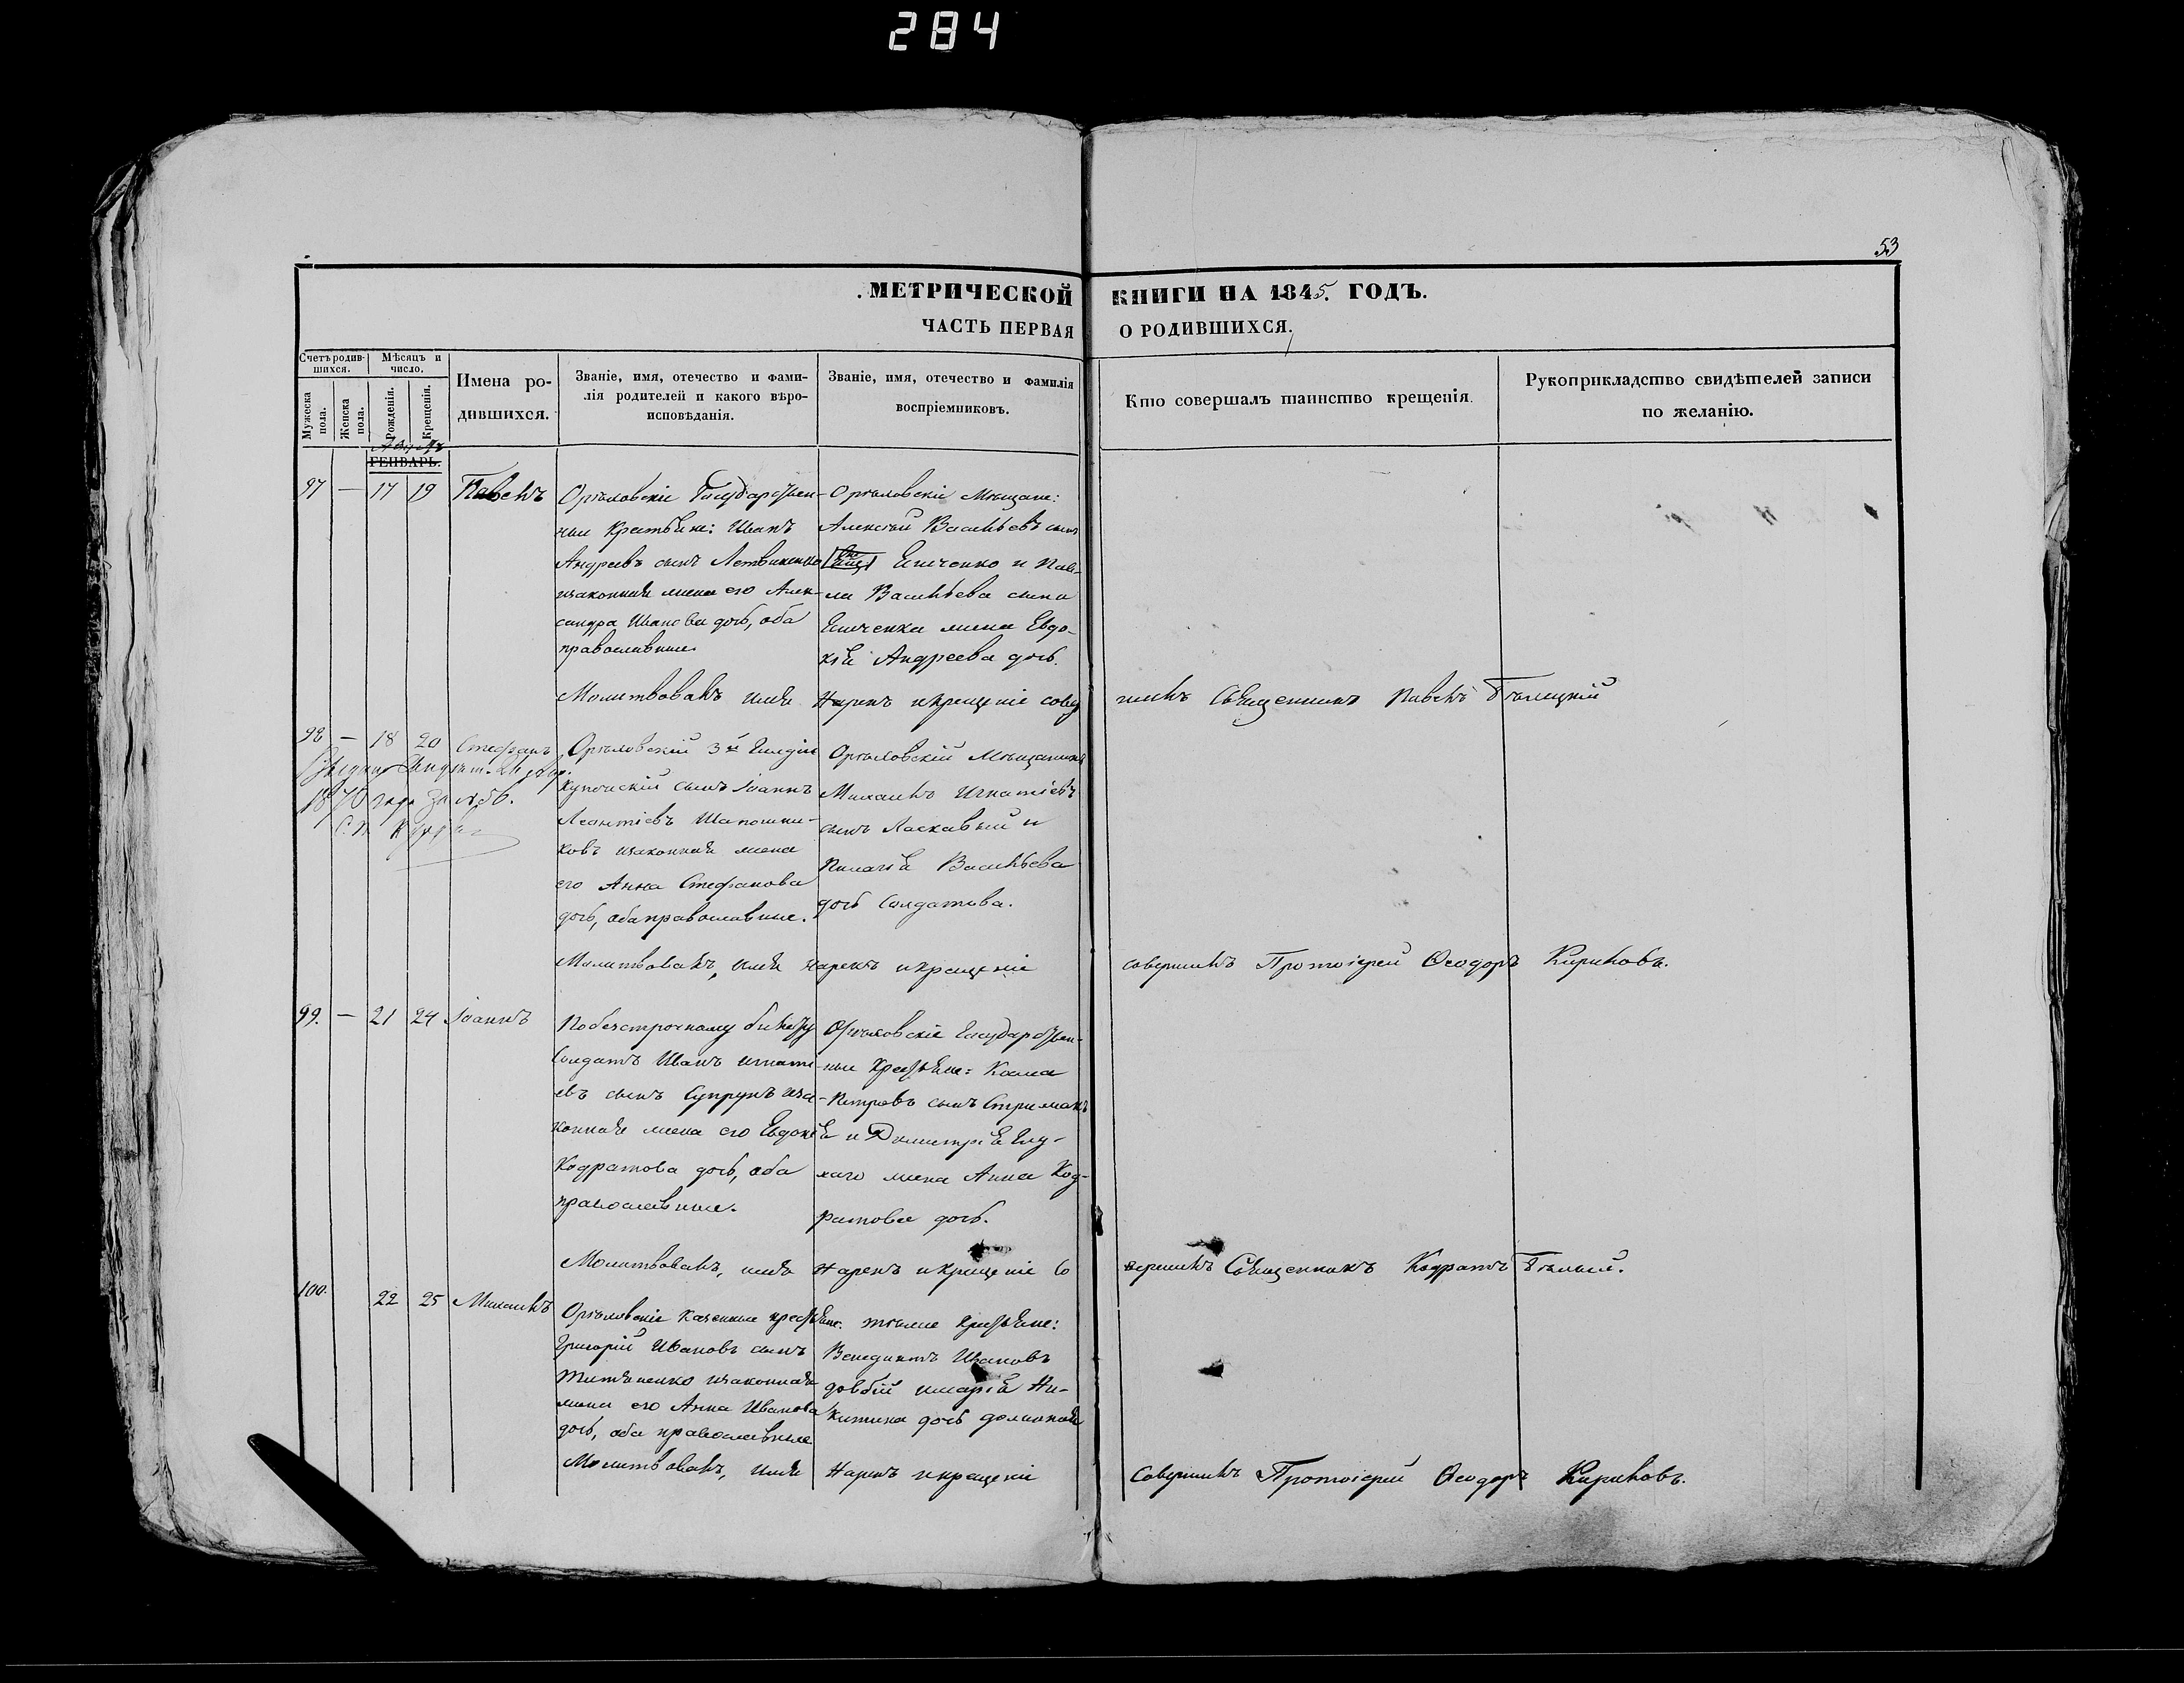 284
53
МЕТРИЧЕСКОЙ КНИГИ НА 1845. ГОДЪ.
ЧАСТЬ ПЕРВАЯ О РОДИВШИХСЯ.
Счетъ родив-
шихся.
Мужеска
пола.
Женска
пола.
Мѣсяцъ и
число.
Рожденія.
Крещенія.
Имена ро-
дившихся.
Званіе, имя, отечество и фами-
лія родителей и какого вѣро-
исповѣданія.
Званіе, имя, отечество и фамилія
воспріемниковъ.
Кто совершалъ таинство крещенія.
Рукоприкладство свидѣтелей записи
по желанію.
Августъ
ГЕНВАРЬ.
97 — 17 19 Павелъ
Орѣховскіе Государствен-
ные Крестьяне: Иванъ
Андреевъ сынъ Летвиненко
изаконная жена его Алек-
сандра Иванова дочь, оба
православные.
Орѣховскіе Мѣщане:
Алексѣй Васильевъ сынъ
Емченко и Пав-
ла Васильева сына
Емченка жена Евдо-
кія Андреева дочь.
Молитвовалъ имя Нарекъ икрещеніе совер
шилъ Священникъ Павелъ Бѣлицкій
98 — 18 20 Стефанъ
1870 года за №
Орѣховскій 3й Гильдіи
купеческій сынъ Іоаннъ
Леонтіевъ Шапошни-
ковъ изаконная жена
его Анна Стефанова
дочь, оба православные.
Орѣховскій Мѣщанинъ
Михаилъ Игнатіевъ
сынъ Ласкавый и
Пелагія Васильева
дочь Солдатова.
Молитвовалъ, имя нарекъ икрещеніе
совершилъ Протоіерей Ѳеодоръ Кириловъ.
99. — 21 24 Іоаннъ
Побезсрочному билету
Солдатъ Иванъ Игнати-
евъ сынъ Супрунъ иза-
конная жена его Евдокія
Кодратова дочь, оба
православные.
Орѣховскіе Государствен-
ные Крестьяне:
Петровъ сынъ
и Димитрія Глу-
хаго жена Анна Код-
ратова дочь.
Молитвовалъ, имя Нарекъ икрещеніе Со
вершилъ Священникъ Кодратъ Бѣлый.
100. 22 25 Михаилъ
Орѣховскіе Казенные крестьяне:
Григорій Ивановъ сынъ
изаконная
жена его Анна Иванова
дочь, оба православные
тѣже Крестьяне:
Венедиктъ Ивановъ
Довбій имарія Ни-
китина дочь
Молитвовалъ, имя Нарекъ икрещеніе
Совершилъ Протоіерей Ѳеодоръ Кириловъ.